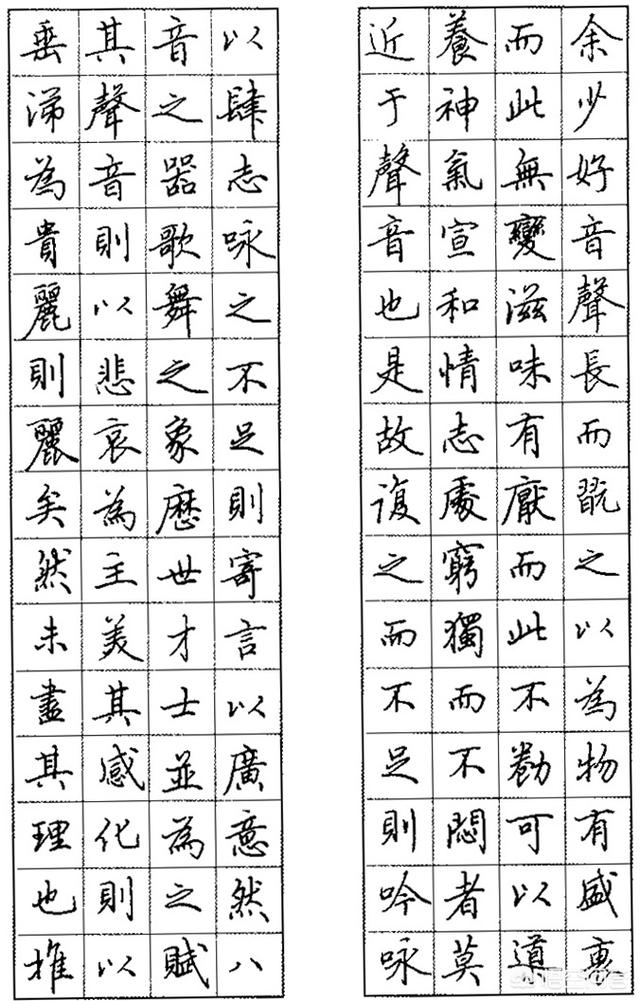 余少好音聲長而翫之以為物有盛衰
而此無變滋味有厭而此不勌可以導
養神氣宣和情志處窮獨而不悶者莫
近于聲音也是故復之而不足則吟咏
以肆志咏之不足則寄言以廣意然八
音之器歌舞之象歷世才士並為之賦
其聲音則以悲哀為主美其感化則以
垂涕為貴麗則麗矣然未盡其理也推